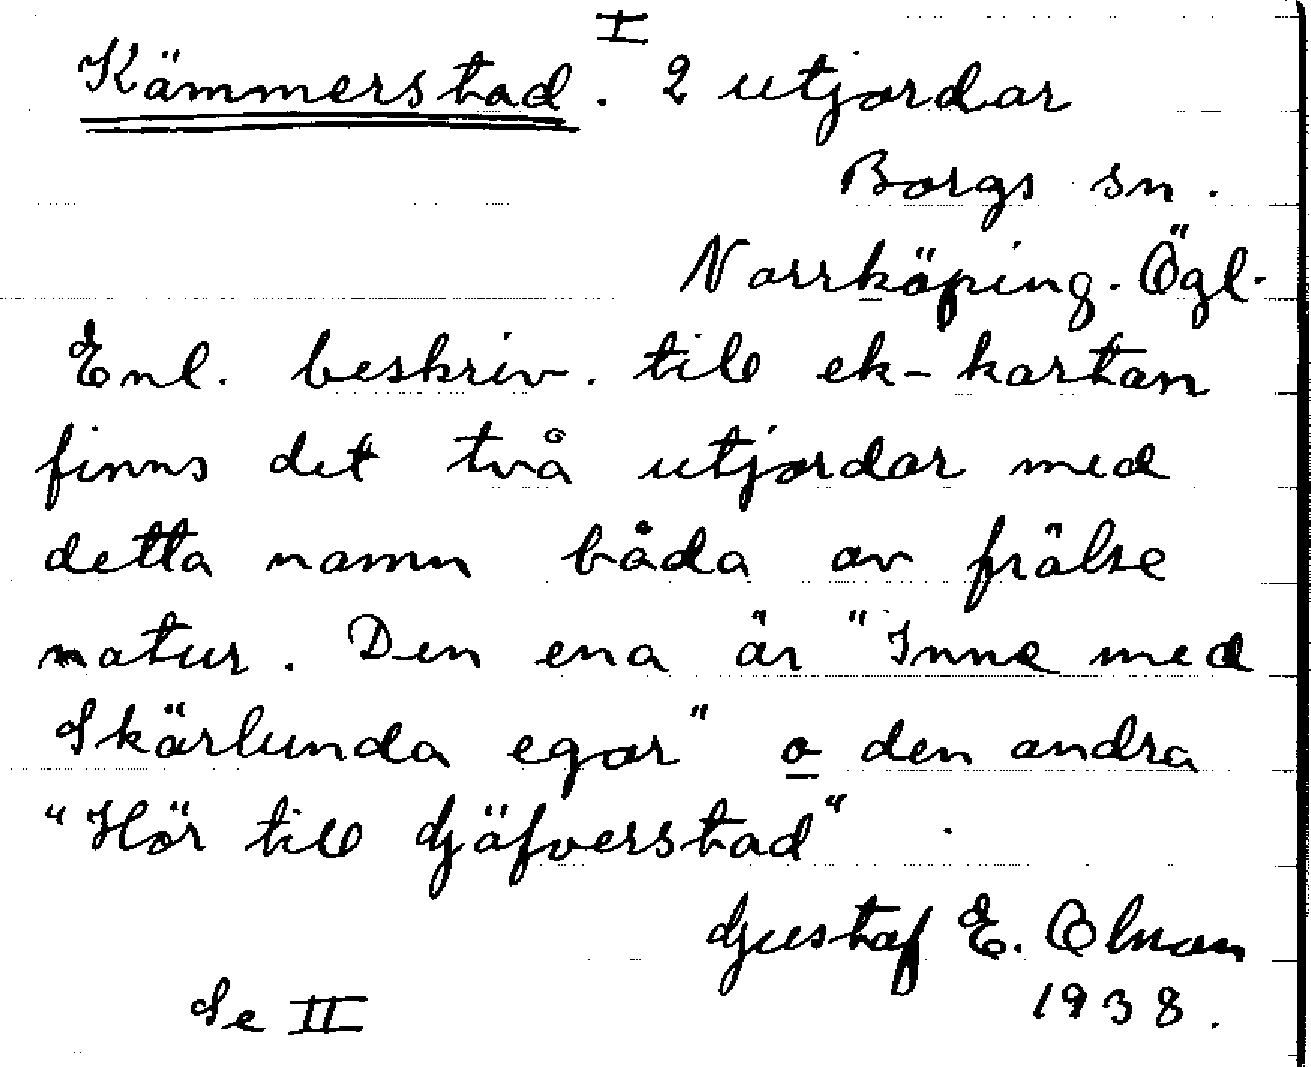 I
Kämmerstad. 2 utjordar
Borgs sn.
Norrköping. Ögl.
Enl. beskriv. till ek-kartan
finns det två utjordar med
detta namn båda av frälse
natur. Den ena är "Inne med
Skärlunda egor" o den andra
"Hör till Gjäfverstad"
Gustaf E. Olman
1938.
Se II